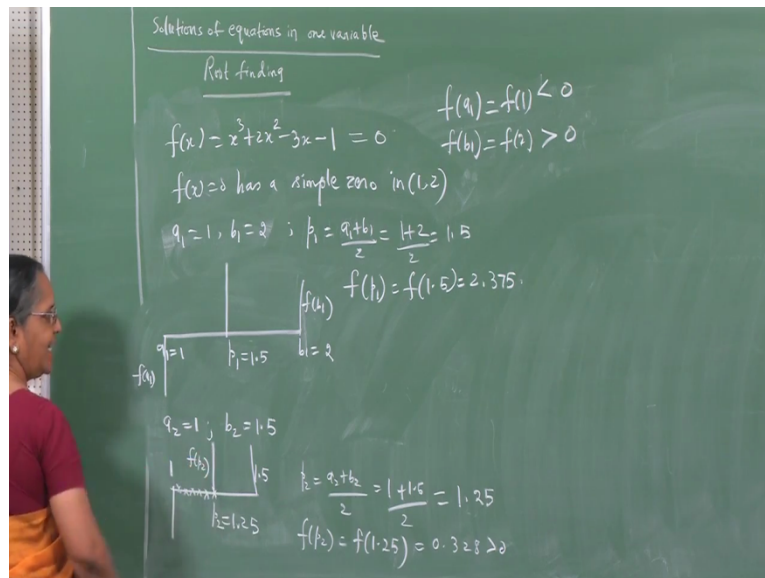 Solutions of equations in one variable
Root finding
f(x) = x³+2x²-3x-1 = 0
f(a₁) = f(1) < 0
f(b₁) = f(2) > 0
f(x)=0 has a simple zero in (1,2)
a₁=1, b₁=2 ; p₁ = (a₁+b₁)/2 = (1+2)/2 = 1.5
f(p₁) = f(1.5) = 2.375.
f(b₁)
a₁=1 p₁=1.5 b₁=2
f(a₁)
a₂=1 ; b₂=1.5
f(p₂)
1 1.5
p₂=1.25
p₂ = (a₂+b₂)/2 = (1+1.5)/2 = 1.25
f(p₂) = f(1.25) = 0.328 >0